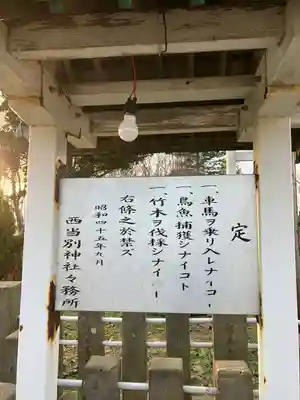 定
一、車馬ヲ乗リ入レナイコト
一、鳥魚捕獲シナイコト
一、竹木ヲ伐採シナイ
右條之於禁ズ
昭和四十五年九月
西当別神社々務所